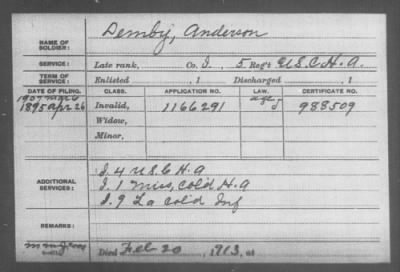 NAME OF SOLDIER: Demby, Anderson
SERVICE: Late rank, Co. I, 5 Reg't U.S.C.H.A.
TERM OF SERVICE: Enlisted , 1 Discharged , 1
DATE OF FILING. CLASS. APPLICATION NO. LAW. CERTIFICATE NO.
1907 Mar 6
1895 Apr 26 Invalid, 1166291 age J 988509
Widow,
Minor,
ADDITIONAL SERVICES: I. 4 U S C H. A
I. 1 Miss, Cold H. A
I. 9 La Cold Inf
REMARKS:
Died Feb 20, 1913, at